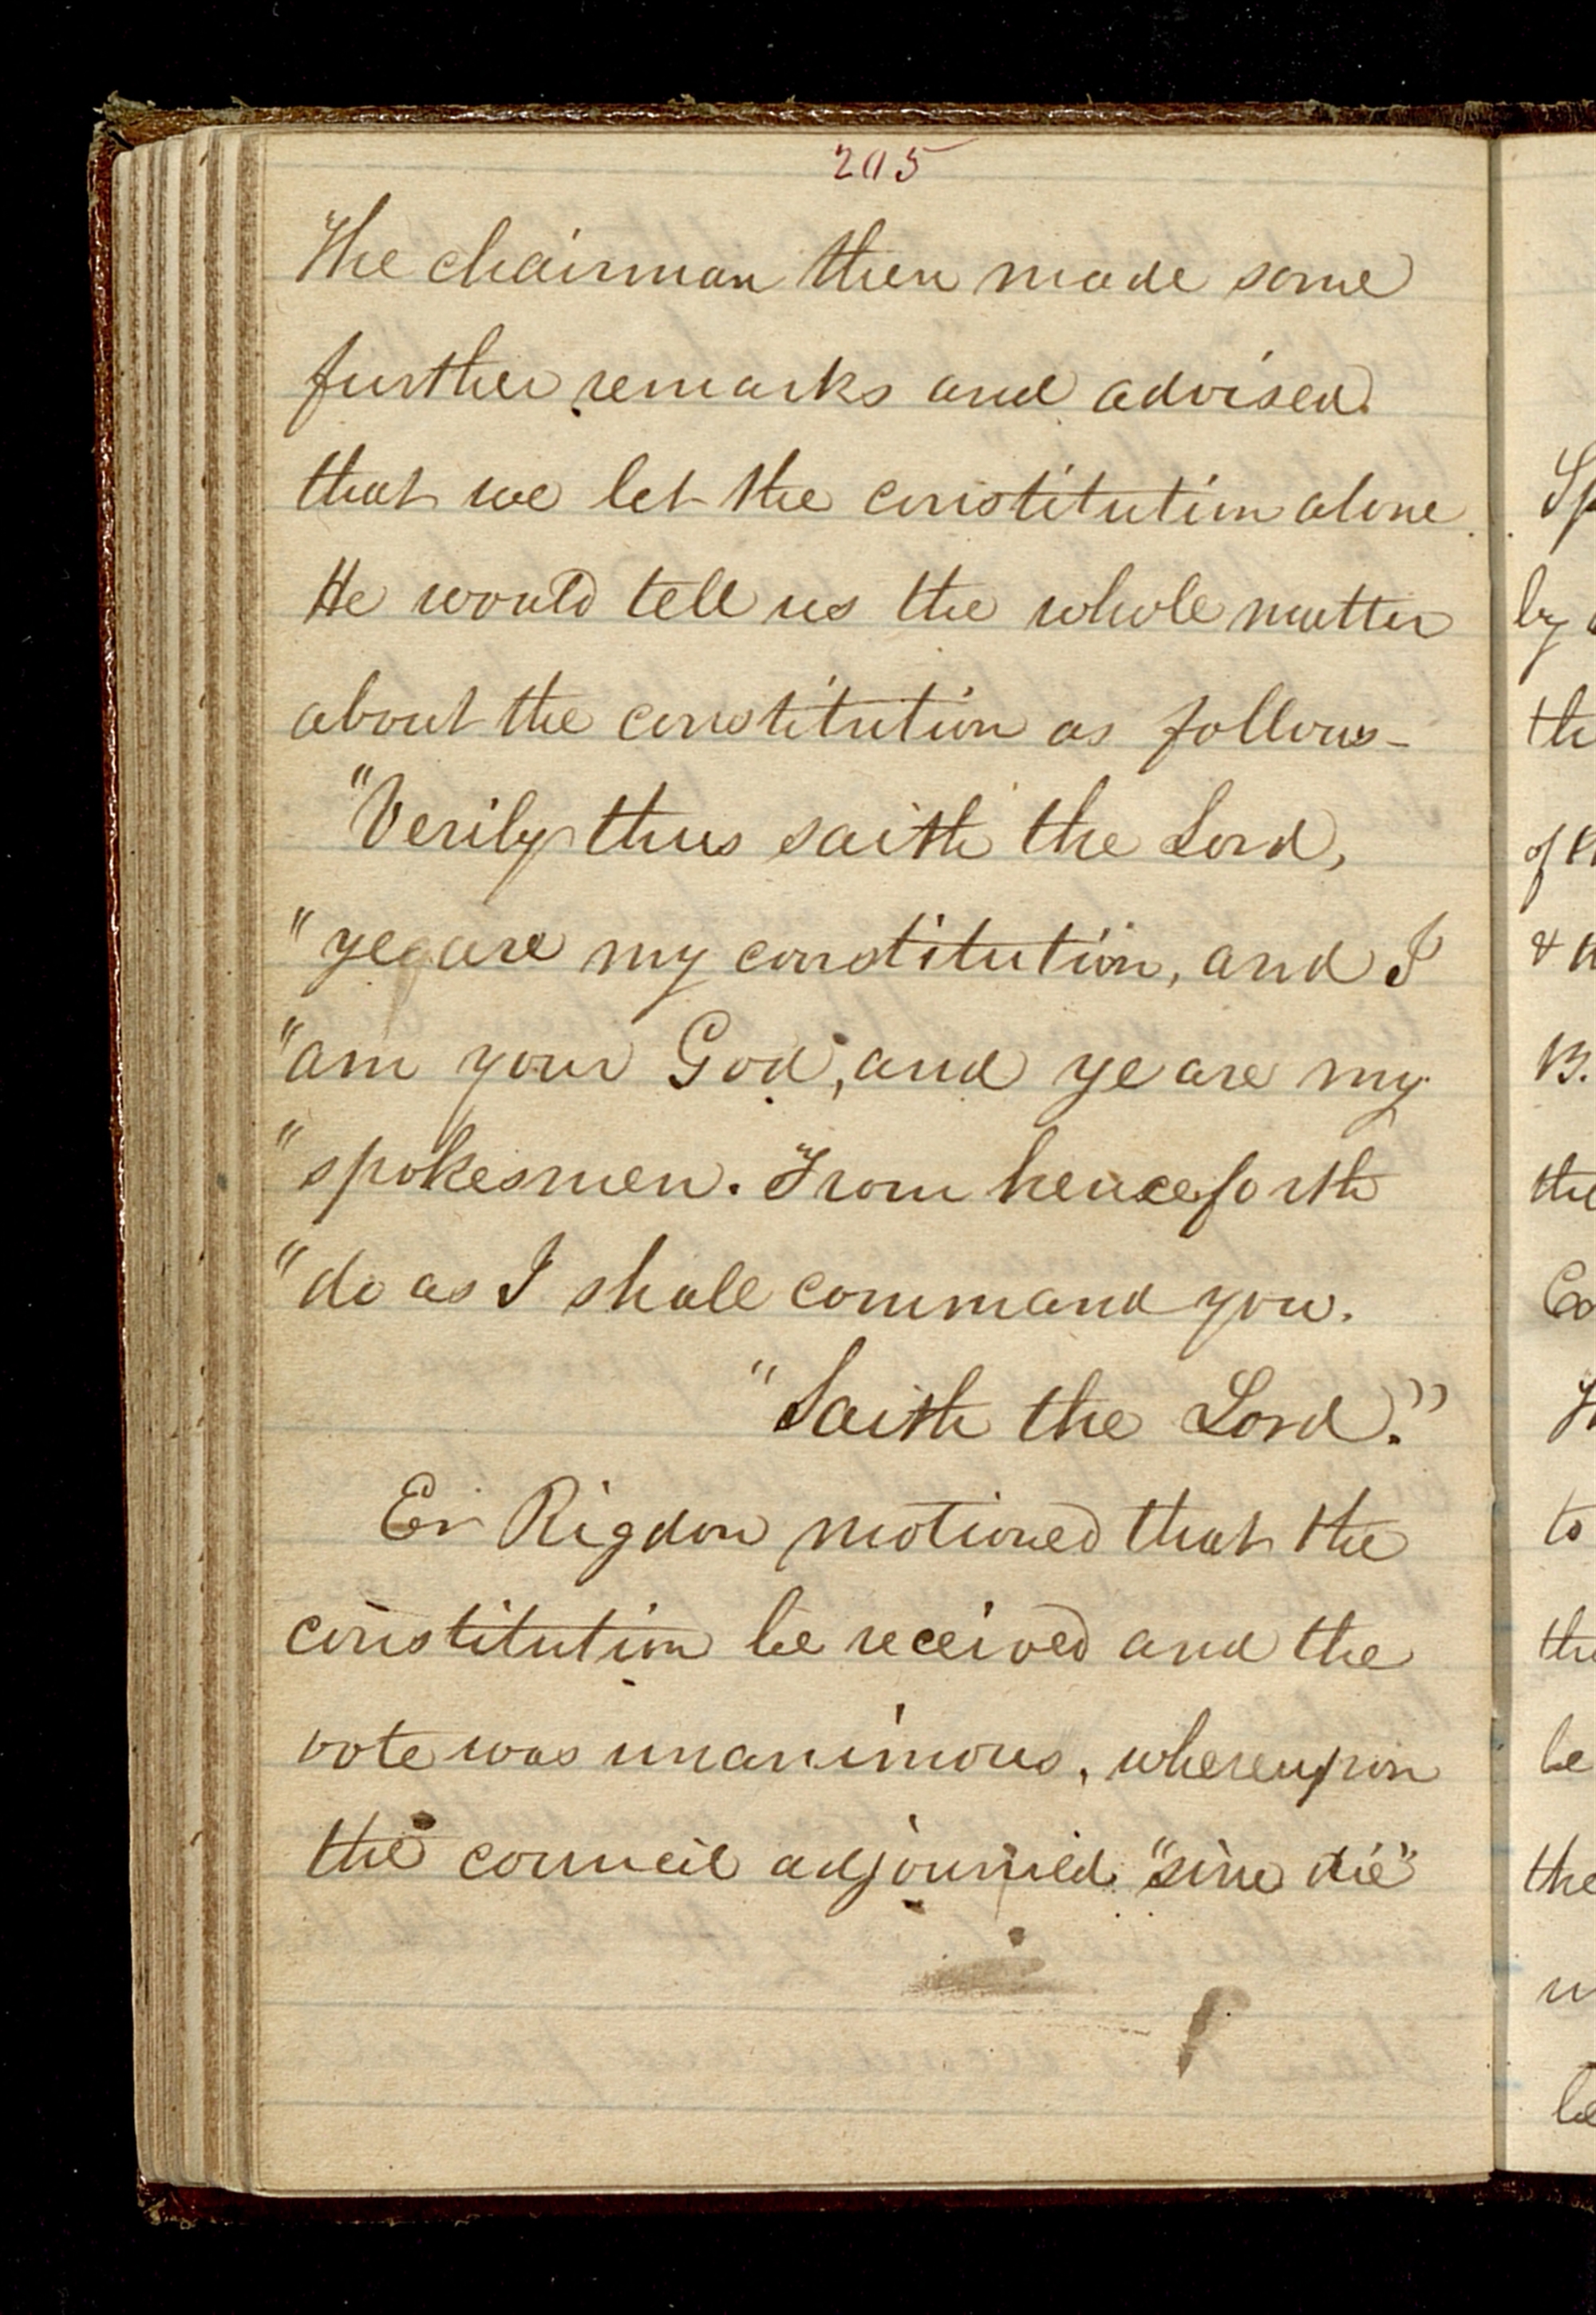 205
The chairman then made some
further remarks and advised
that we let the constitution alone.
He would tell us the whole matter
about the constitution as follows-
"Verily thus saith the Lord,
"ye are my constitution, and I
"am your God, and ye are my
"spokesmen. From henceforth
"do as I shall command you.
"Saith the Lord."
Er Rigdon motioned that the
constitution be received and the
vote was unanimous, whereupon
the council adjourned "sine die"
Sp
by
the
of
&
B.
the
Co
to
the
be
the
be